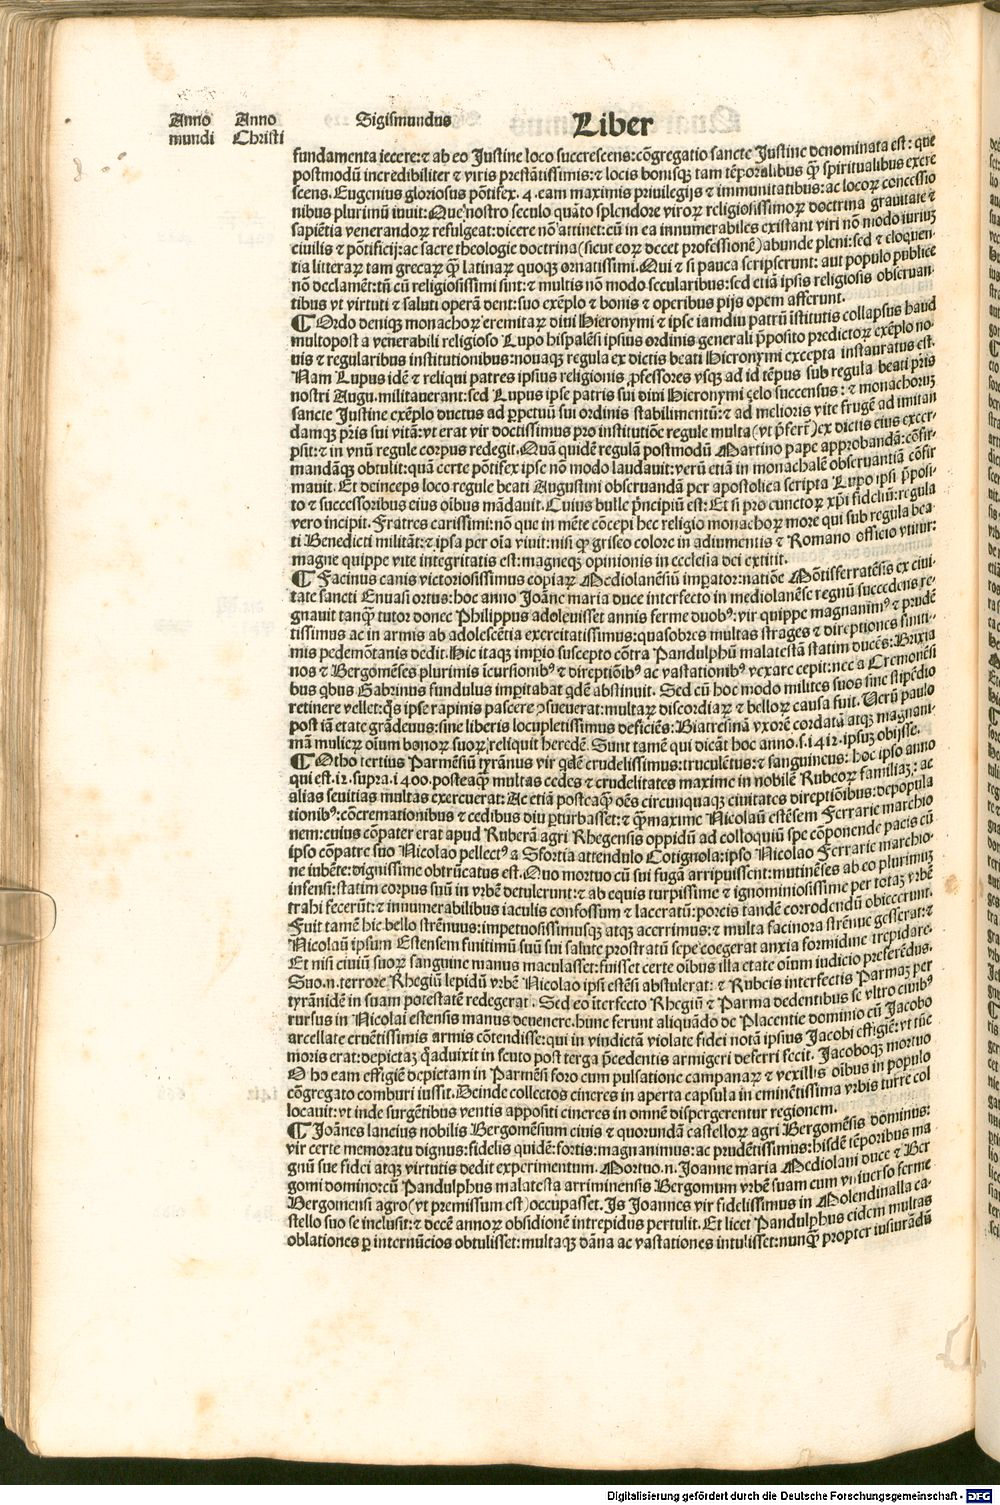 Anno Anno Sigismundus Liber
mundi Christi
fundamenta iecere:⁊ ab eo Justine loco succrescens:cõgregatio sancte Justine denominata est: que
postmodũ incredibiliter ⁊ viris prestãtissimis:⁊ locis bonisqꝫ tam tẽporalibus q̃ꝫ spiritualibus excre
scens. Eugenius gloriosus põtifex .4. eam maximis priuilegijs ⁊ immunitatibus: ac locoꝝ concessio
nibus plurimũ iuuit:Que nostro seculo quãto splendore viroꝝ religiosissimoꝝ doctrina grauitate ⁊
sapiẽtia venerandoꝝ refulgeat:dicere nõ attinet:cũ in ea innumerabiles existant viri nõ modo iuriuꝫ
ciuilis ⁊ põtificij:ac sacre theologie doctrina(sicut eoꝝ decet professionẽ)abunde pleni:sed ⁊ eloquen
tia litteraꝝ tam grecaꝝ q̃ꝫ latinaꝝ quoqꝫ ornatissimi.Qui ⁊ si pauca scripserunt: aut populo publice
nõ declamẽt:tñ cũ religiosissimi sint:⁊ multis nõ modo secularibus:sed etiã ipsis religiosis obseruan
tibus vt virtuti ⁊ saluti operã dent:suo exẽplo ⁊ bonis ⁊ operibus pijs opem afferunt.
¶Ordo deniqꝫ monachoꝝ eremitaꝝ diui Hieronymi ⁊ ipse iamdiu patrũ ĩstitutis collapsus haud
multopost a venerabili religioso Lupo hispalẽsi ipsius ordinis generali p̃posito predictoꝝ exẽplo no
uis ⁊ regularibus institutionibus:nouaqꝫ regula ex dictis beati Hieronymi excepta instauratus est.
Nam Lupus idẽ ⁊ reliqui patres ipsius religionis ꝓfessores vsqꝫ ad id tẽpus sub regula beati p̃ris
nostri Augu.militauerant:sed Lupus ipse patris sui diui Hieronymi çelo succensus: ⁊ monachoruꝫ
sancte Justine exẽplo ductus ad ꝑpetuũ sui ordinis stabilimentũ:⁊ ad melioris vite frugẽ ad imitan
damqꝫ p̃ris sui vitã:vt erat vir doctissimus pro institutiõe regule multa(vt p̃fert̃)ex dictis eius excer
psit:⁊ in vnũ regule corpus redegit.Quã quidẽ regulã postmodũ Martino pape approbandã:cõfir
mandãqꝫ obtulit:quã certe põtifex ipse nõ modo laudauit:verũ etiã in monachalẽ obseruantiã cõfir
mauit. Et deinceps loco regule beati Augustini obseruandã per apostolica scripta Lupo ipsi p̃posi
to ⁊ successoribus eius oĩbus mãdauit.Cuius bulle p̃ncipiũ est:Et si pro cunctoꝝ xp̃i fideliũ:regula
vero incipit.Fratres carissimi:nõ que in mẽte cõcepi hec religio monachoꝝ more qui sub regula bea
ti Benedicti militãt:⁊ ipsa per oĩa viuit:nisi qꝫ griseo colore in adiumentis ⁊ Romano officio vtitur:
magne quippe vite integritatis est:magneqꝫ opinionis in ecclesia dei extitit.
¶ Facinus canis victoriosissimus copiaꝝ Mediolanẽsiũ imꝑator:natiõe Mõtisferratẽsis ex ciui
tate sancti Enuasi ortus:hoc anno Joãne maria duce interfecto in mediolanẽse regnũ succedens re
gnauit tanq̃ꝫ tutor donec Philippus adoleuisset annis ferme duobꝰ:vir quippe magnanimꝰ ⁊ prudẽ
tissimus ac in armis ab adolescẽtia exercitatissimus:quasobres multas strages ⁊ direptiones finiti
mis pedemõtanis dedit.Hic itaqꝫ imꝑio suscepto cõtra Pandulphũ malatestã statim ducẽs:Brixia
nos ⁊ Bergomẽses plurimis ĩcursionibꝰ ⁊ direptiõibꝰ ac vastationibꝰ vexare cepit:nec a Cremonẽsi
bus qbus Gabrinus fundulus imꝑitabat qdẽ abstinuit. Sed cũ hoc modo milites suos sine stipẽdio
retinere vellet:q̃s ipse rapinis pascere ꝯsueuerat:multaꝝ discordiaꝝ ⁊ belloꝝ causa fuit. Verũ paulo
post iã etate grãdeuus:sine liberis locupletissimus deficiẽs:Biatresinã vxorẽ cordatã atqꝫ magnani
mã mulieꝝ oĩum bonoꝝ suoꝝ;reliquit heredẽ. Sunt tamẽ qui dicãt hoc anno.s.1412.ipsuꝫ obijsse.
¶Otho tertius Parmẽsiũ tyrãnus vir qdẽ crudelissimus:truculẽtus:⁊ sanguineus: hoc ipso anno
qui est.12.supra.1400.posteaq̃ꝫ multas cedes ⁊ crudelitates maxime in nobilẽ Rubeoꝝ familiaꝫ: ac
alias seuitias multas exercuerat:Ac etiã posteaq̃ꝫ oẽs circunquaqꝫ ciuitates direptiõibus:depopula
tionibꝰ:cõcremationibus ⁊ cedibus diu ꝑturbasset:⁊ q̃ꝫmaxime Nicolaũ estẽsem Ferrarie marchio
nem:cuius cõpater erat apud Ruberã agri Rhegensis oppidũ ad colloquiũ spe cõponende pacis cũ
ipso cõpatre suo Nicolao pellectꝰ a Sfortia attendulo Cotignola:ipso Nicolao Ferrarie marchio
ne iubẽte:dignissime obtrũcatus est.Quo mortuo cũ sui fugã arripuissent:mutinẽses ab eo plurimuꝫ
infensi:statim corpus suũ in vrbẽ detulerunt:⁊ ab equis turpissime ⁊ ignominiosissime per totaꝫ vrbẽ
trahi fecerũt:⁊ innumerabilibus iaculis confossum ⁊ laceratũ:porcis tandẽ corrodendũ obiecerunt.
Fuit tamẽ hic bello strẽnuus:impetuosissimusqꝫ atqꝫ acerrimus:⁊ multa facinora strẽnue gesserat:⁊
Nicolaũ ipsum Estensem finitimũ suũ sui salute prostratũ sepe coegerat anxia formidine trepidare.
Et nisi ciuiũ suoꝝ sanguine manus maculasset:fuisset certe oĩbus illa etate oĩum iudicio preferẽdus.
Suo.n.terrore Rhegiũ lepidũ vrbẽ Nicolao ipsi estẽsi abstulerat: ⁊ Rubeis interfectis Parmaꝫ per
tyrãnidẽ in suam potestatẽ redegerat . Sed eo ĩterfecto Rhegiũ ⁊ Parma dedentibus se vltro ciuibꝰ
rursus in Nicolai estensis manus deuenere.hunc ferunt aliquãdo de Placentie dominio cũ Jacobo
arcellate cruẽtissimis armis cõtendisse:qui in vindictã violate fidei notã ipsius Jacobi effigiẽ:vt tũc
moris erat:depictaꝫ q̃aduixit in scuto post terga p̃cedentis armigeri deferri fecit. Jacoboqꝫ mortuo
O ho eam effigiẽ depictam in Parmẽsi foro cum pulsatione campanaꝝ ⁊ vexillis oĩbus in populo
cõgregato comburi iussit.Deinde collectos cineres in aperta capsula in eminẽtissima vrbis turre col
locauit:vt inde surgẽtibus ventis appositi cineres in omnẽ dispergerentur regionem.
¶ Joãnes lancius nobilis Bergomẽsium ciuis ⁊ quorundã castelloꝝ agri Bergomẽsis dominus:
vir certe memoratu dignus:fidelis quidẽ:fortis:magnanimus:ac prudẽtissimus:hisdẽ tẽporibus ma
gnũ sue fidei atqꝫ virtutis dedit experimentum. Mortuo.n.Joanne maria Mediolani duce ⁊ Ber
gomi domino:cũ Pandulphus malatesta arriminensis Bergomum vrbẽ suam cum vniuerso ferme
Bergomensi agro(vt premissum est)occupasset. Is Joannes vir fidelissimus in Molendinalla ca
stello suo se inclusit:⁊ decẽ annoꝝ obsidionẽ intrepidus pertulit. Et licet Pandulphus eidem multas
oblationes ꝑ internũcios obtulisset:multaqꝫ dãna ac vastationes intulisset:nunq̃ꝫ propter iusiurãdũ
Digitalisierung gefördert durch die Deutsche Forschungsgemeinschaft - DFG